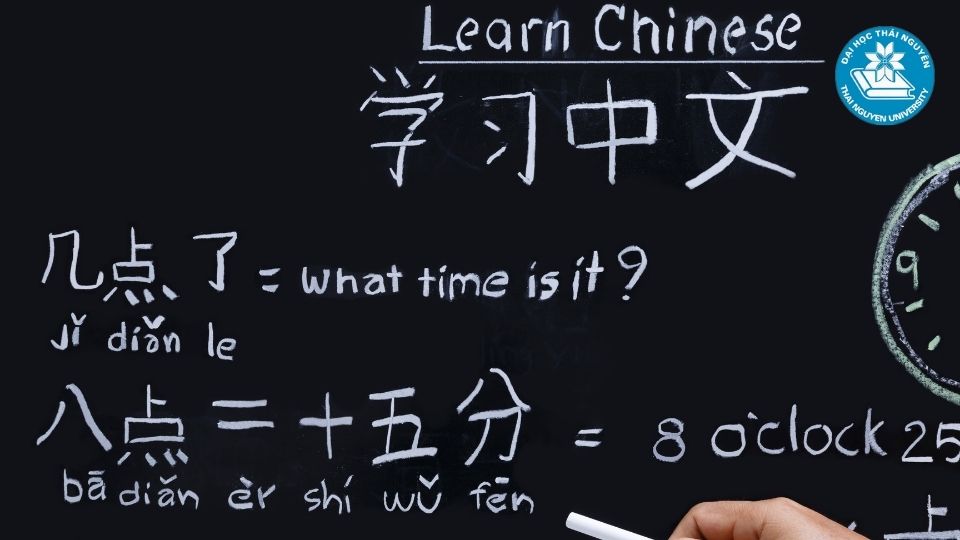 Learn Chinese
学习中文
ĐẠI HỌC THÁI NGUYÊN
THAI NGUYEN UNIVERSITY
几点了 = what time is it?
jǐ diǎn le
9
八点二十五分 = 8 o'clock 25
bā diǎn èr shí wǔ fēn